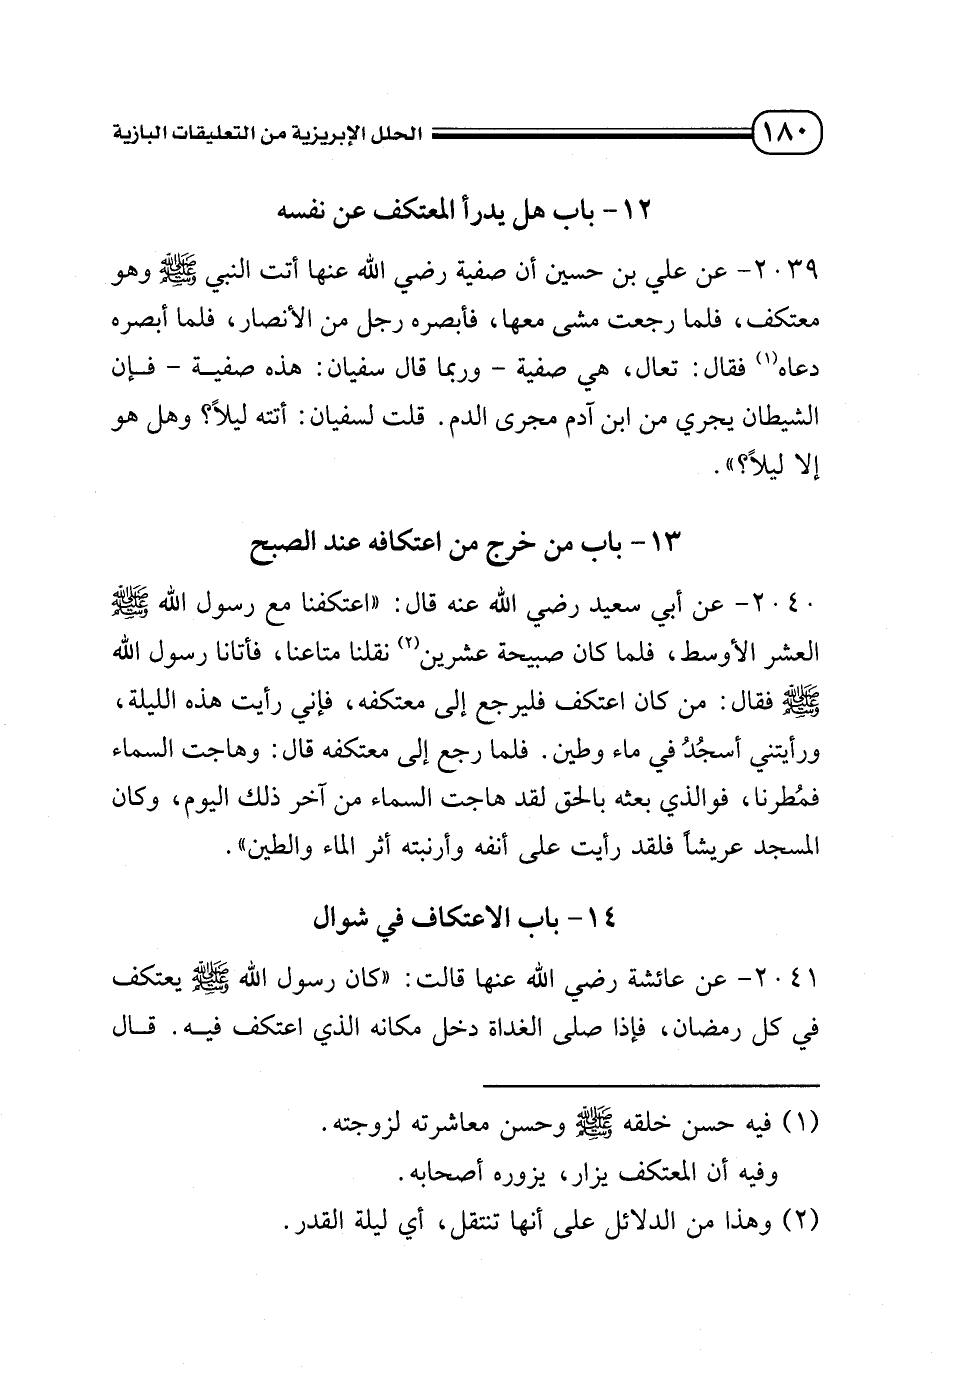 ١٨٠ الحلل الإبريزية من التعليقات البازية
١٢- باب هل يدرأ المعتكف عن نفسه
٢٠٣٩- عن علي بن حسين أن صفية رضي الله عنها أتت النبي ﷺ وهو
معتكف، فلما رجعت مشى معها، فأبصره رجل من الأنصار، فلما أبصره
دعاه(١) فقال: تعال، هي صفية - وربما قال سفيان: هذه صفيــة - فــإن
الشيطان يجري من ابن آدم مجرى الدم. قلت لسفيان: أتته ليلاً؟ وهل هو
إلا ليلاً؟».
١٣- باب من خرج من اعتكافه عند الصبح
٢٠٤٠- عن أبي سعيد رضي الله عنه قال: «اعتكفنا مع رسول الله ﷺ
العشر الأوسط، فلما كان صبيحة عشرين(٢) نقلنا متاعنا، فأتانا رسول الله
ﷺ فقال: من كان اعتكف فليرجع إلى معتكفه، فإني رأيت هذه الليلة،
ورأيتني أسجُدُ في ماء وطين. فلما رجع إلى معتكفه قال: وهاجت السماء
فمُطرنا، فوالذي بعثه بالحق لقد هاجت السماء من آخر ذلك اليوم، وكان
المسجد عريشاً فلقد رأيت على أنفه وأرنبته أثر الماء والطين».
١٤- باب الاعتكاف في شوال
٢٠٤١- عن عائشة رضي الله عنها قالت: «كان رسول الله ﷺ يعتكف
في كل رمضان، فإذا صلى الغداة دخل مكانه الذي اعتكف فيــه. قــال
(١) فيه حسن خلقه ﷺ وحسن معاشرته لزوجته.
وفيه أن المعتكف يزار، يزوره أصحابه.
(٢) وهذا من الدلائل على أنها تنتقل، أي ليلة القدر.